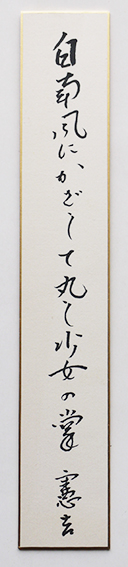 白南風に、かざして丸し少女の掌 憲吉